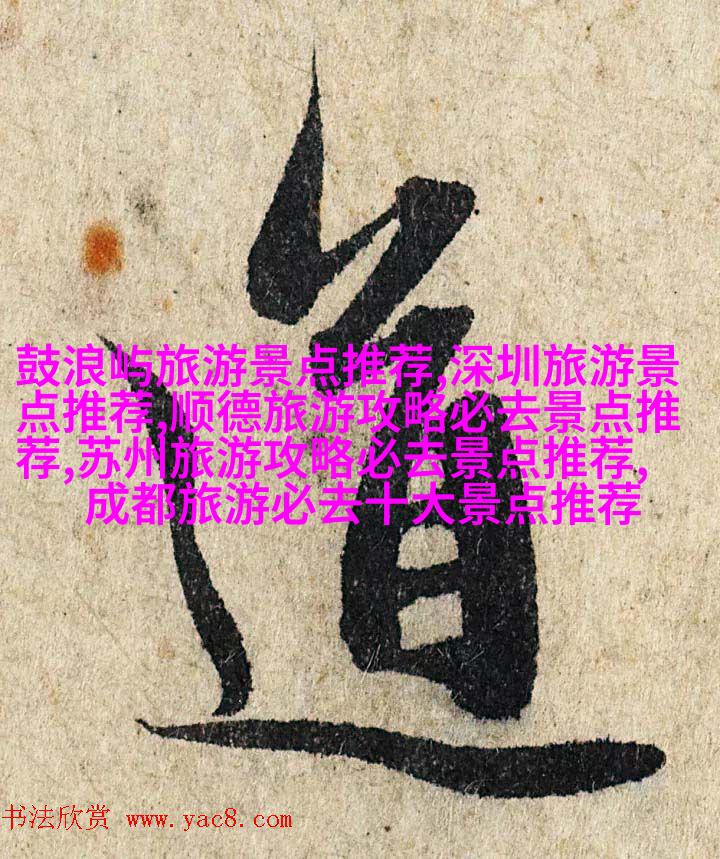 道
鼓浪屿旅游景点推荐,深圳旅游景
点推荐,顺德旅游攻略必去景点推
荐,苏州旅游攻略必去景点推荐,
成都旅游必去十大景点推荐
书法欣赏 www.yac8.com